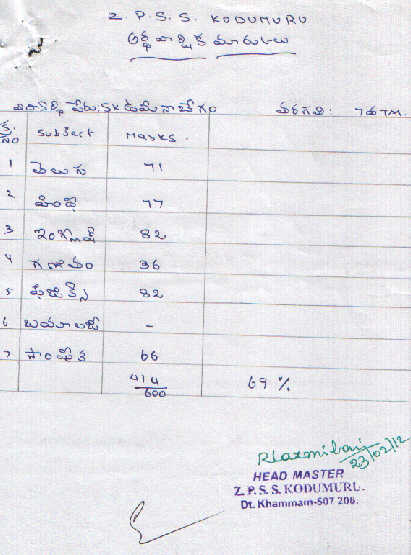 Z. P. S. S. KODUMURU
అర్థ వార్షిక మార్కులు
విద్యార్థి పేరు: SK తరగతి: 7వ TM.
క్ర. సం Subject Marks.
1 తెలుగు 71
2 హిందీ 77
3 ఇంగ్లీష్ 82
4 గణితం 36
5 ఫిజిక్స్ 82
6 బయాలజీ -
7 సాంఘీక 66
414
600 69 %
Rlaxmibai
23/02/12
HEAD MASTER
Z. P. S. S. KODUMURU.
Dt. Khammam-507 206.